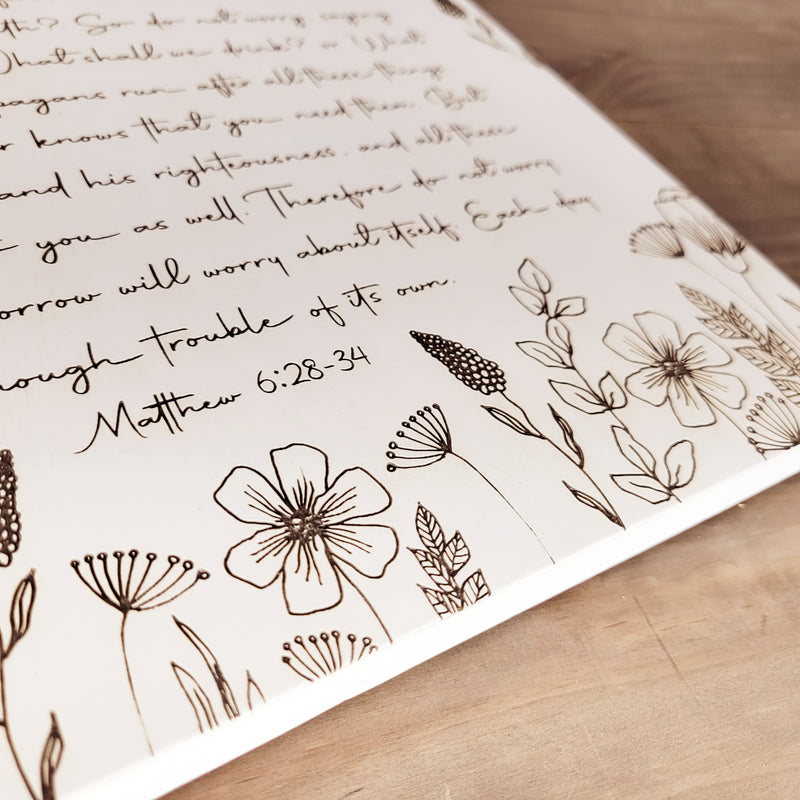 th? So do not worry saying
What shall we drink? or What
pagans run after all these things
r knows that you need them. But
and his righteousness, and all these
you as well. Therefore do not worry
orrow will worry about itself. Each day
nough trouble of its own.
Matthew 6:28-34